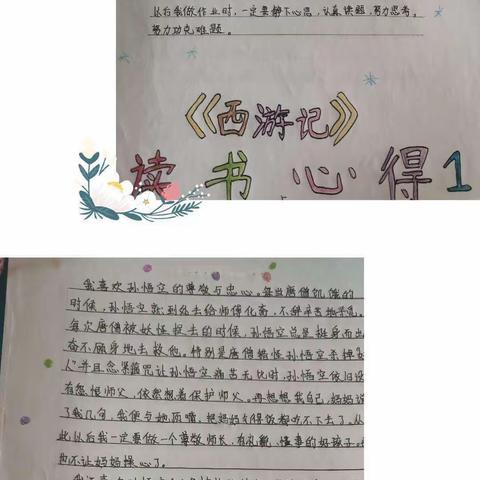 从后我做作业时,一定要静下心思,认真读题,努力思考。
努力功克难题。
《西游记》
读书心得1
我喜欢孙悟空的尊敬与忠心。每当唐僧饥饿的
时候,孙悟空就到处去给师傅化斋,不辞辛苦地
每次唐僧被妖怪捉去的时候,孙悟空总是挺身而出
奋不顾身地去救他。特别是唐僧错怪孙悟空杀
人并且念紧箍咒让孙悟空痛苦无比时,孙悟空依旧没
有怨恨师父,依然想着保护师父。再想想我自己,妈妈说
了我几句,我便与她顶嘴,把妈妈气得饭都吃不下去了。从
此从后我一定要做一个尊敬师长,有礼貌、懂事的好孩子,
也不让妈妈操心了。